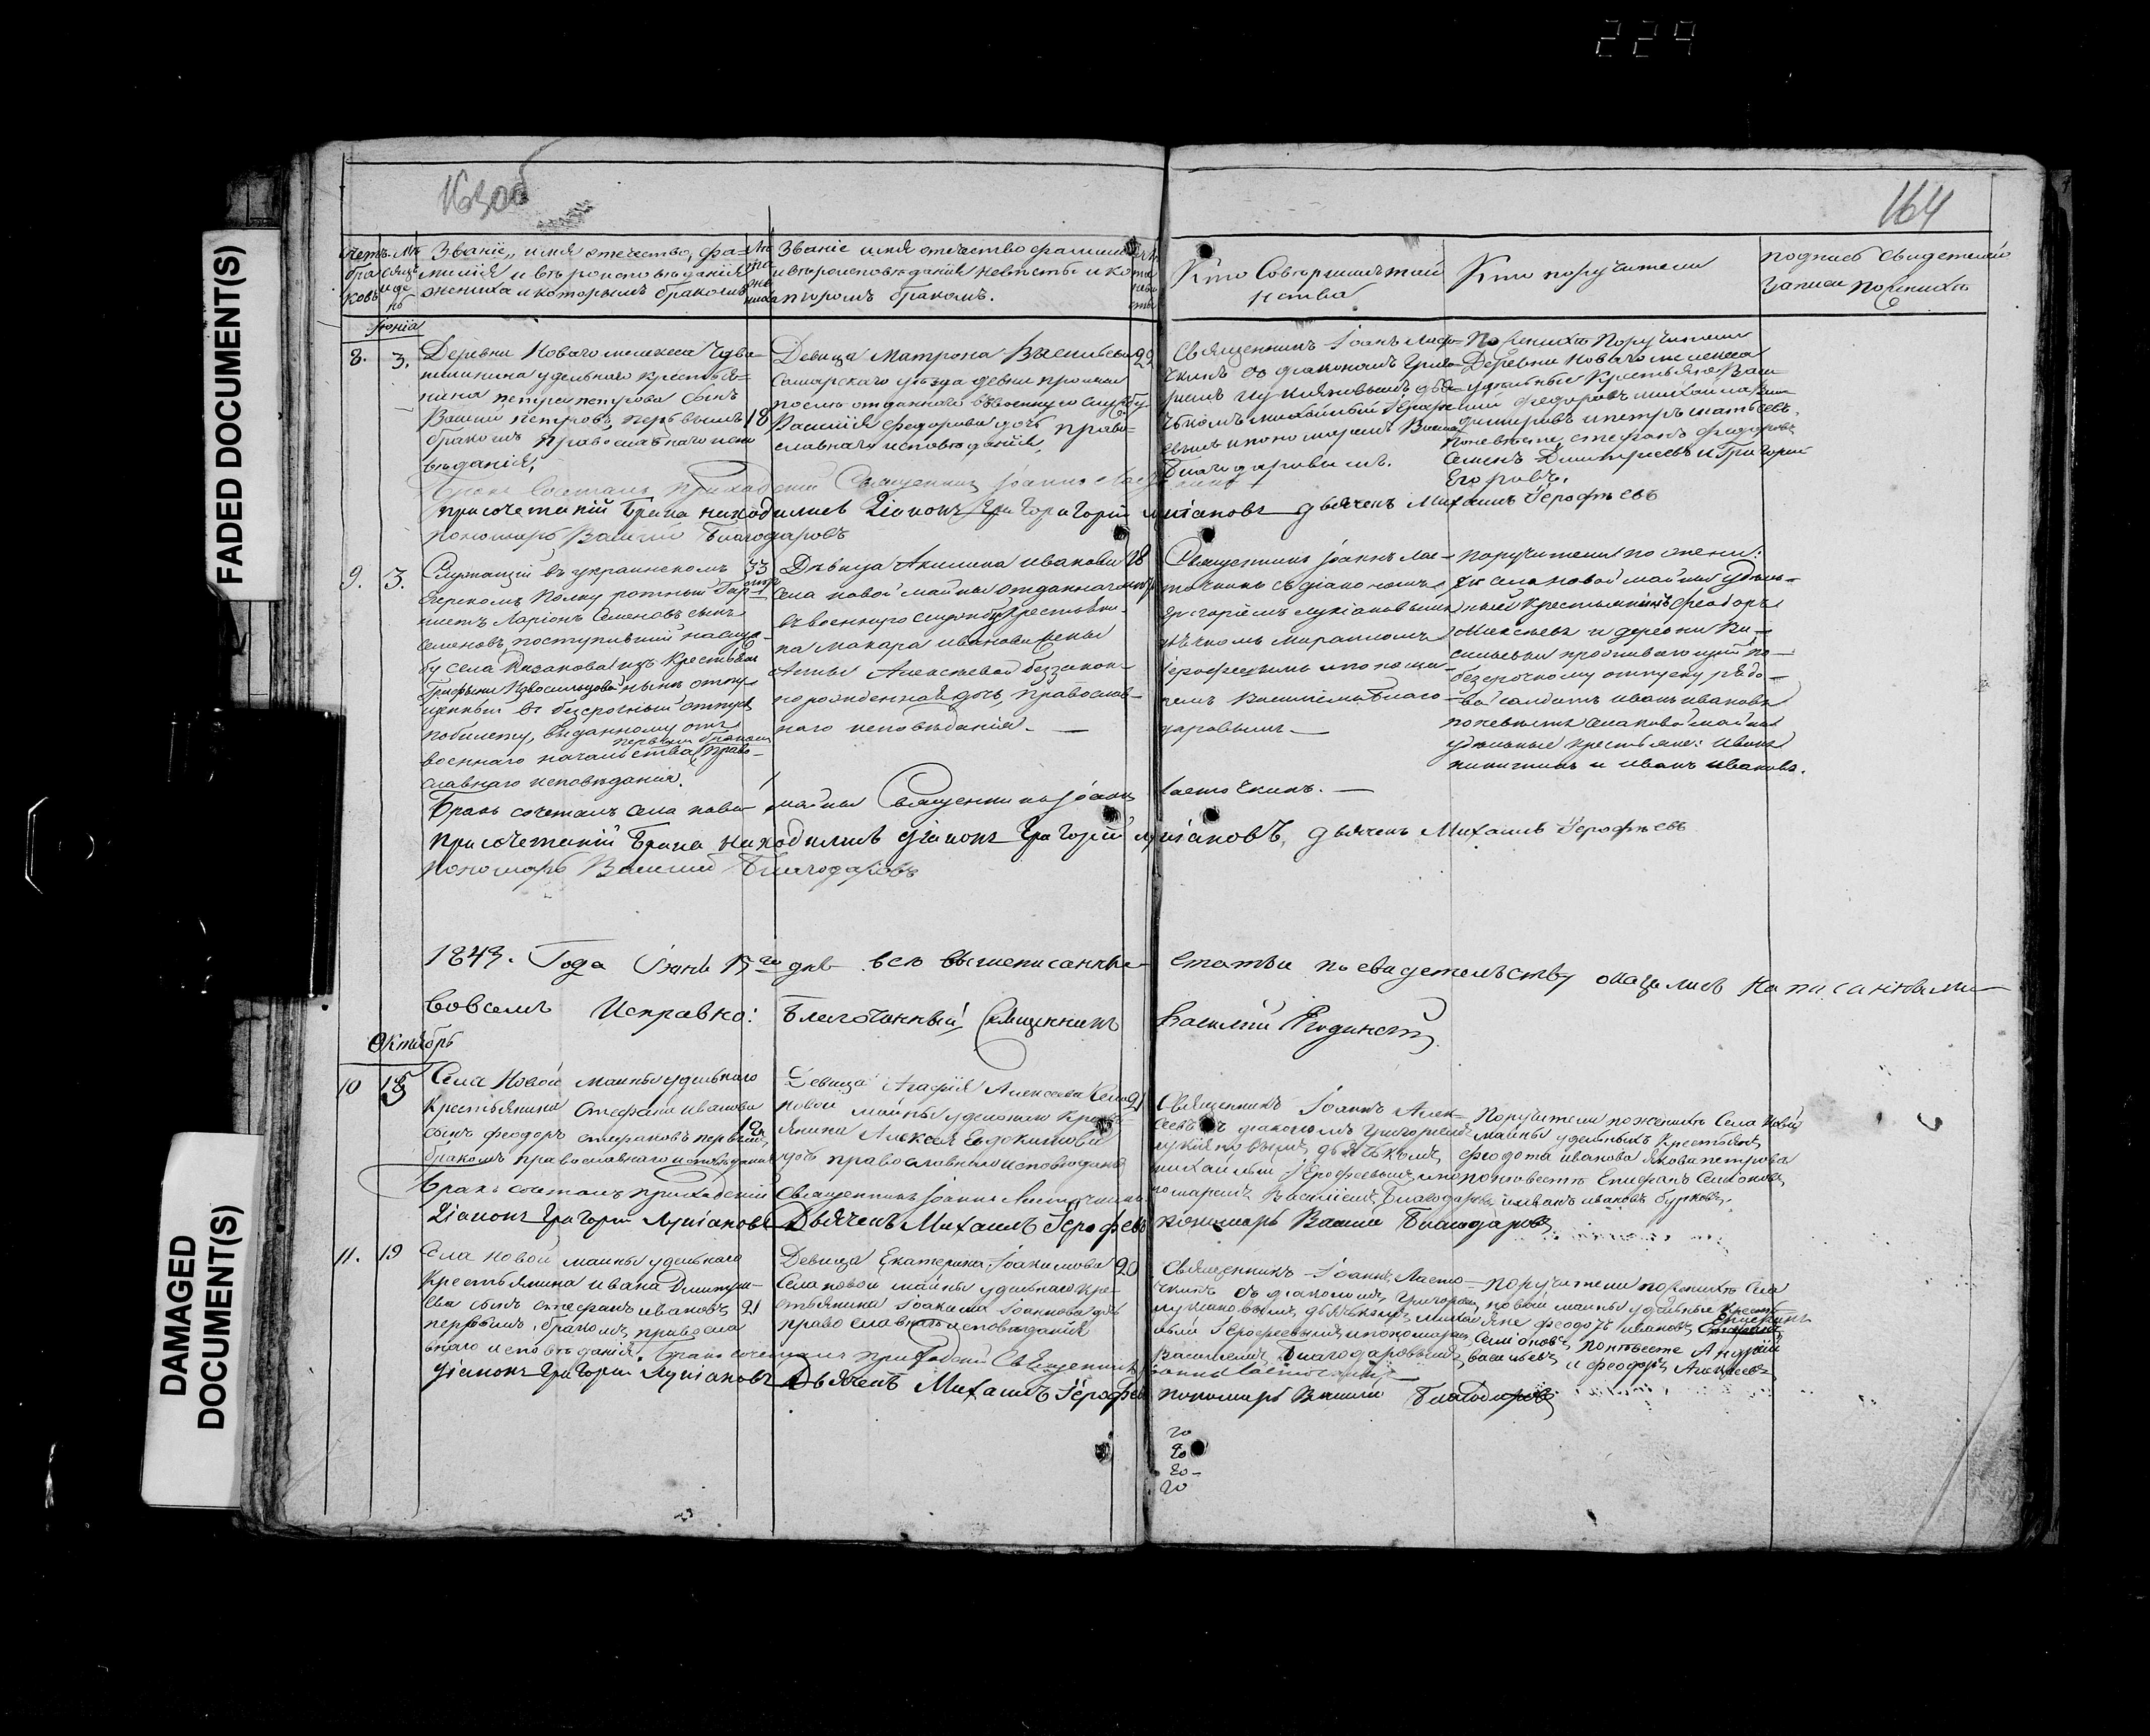 229
FADED DOCUMENT(S)
DAMAGED
DOCUMENT(S)
163 об
164
Счетъ бра ковъ
Званіе, имя отечество, фа-
милія и вѣроисповѣданія
жениха и которымъ бракомъ
Званіе имя отечество фамилія
и вѣроисповѣданія невѣсты и ко
торомъ бракомъ.
Кто Совершилъ таи
нства
Кто поручители
подписъ свидетелей
записи по
Іюнія
8. 3.
Деревни Новаго мелекеса Чува-
шенина удельнаго крестья-
нина петра петрова сынъ
Василій петровъ, первымъ 18
бракомъ православнаго испо
вѣданія,
Девица Матрона Васильева 22
Самарскаго уѣзда девни
после отданнаго въ военную службу
Василія федорова дочь право-
славнаго исповѣданія,
Священникъ Іоанъ Ласто-
чкинъ съ діакономъ Григо-
ріемъ Лукіяновымъ дья-
чькомъ михайлой Ерофее
вымъ и пономаремъ Васил
Благодаровымъ.
По женихе Поручители
Деревни Новаго мелекеса
удельные Крестьяне Васи-
лій федоровъ михайла
димитровъ и петръ матвѣевъ.
По невѣсте, стефанъ федоровъ
Семенъ Димитреевъ и Григорій
Егоровъ.
Бракъ Сочеталъ приходскій Священникъ Іоаннъ Ласточкинъ
При сочетаній брака находились Діаконъ Григорій Лукіановъ дьячекъ Михаилъ Іерофѣевъ
пономарь Василий Благодаровъ
9. 3.
Служащій въ украинскомъ 33
Егерскомъ Полку ротный бар-
нистъ Ларіонъ Семеновъ сынъ
Семеновъ, поступивший на служ-
бу села Казакова изъ крестьянъ
Трифыни Новосильцовой нынѣ отпу-
щенный въ безсрочный отпускъ
по билету, выданному отъ
первымъ бракомъ
военнаго начальства, право-
славнаго исповѣданія.
Дѣвица Акилина Иванова 18
Села новой майны отданнаго
въ военную службу крестьяни-
на макара иванова жены
Анны Алексѣевой беззакон-
но рожденная дочь, православ-
наго исповѣданія. —
Священникъ Іоаннъ Лас-
точкинъ съ діакономъ
Григоріемъ лукіановымъ
дьячкомъ михаиломъ
Іерофеевымъ и понома-
ремъ Василіемъ Благо-
даровымъ. —
поручители по жени:
хѣ села новой майны удѣль-
ный Крестьянинъ феодоръ
Алексѣевъ и деревни Ва-
сильевки проживающій по-
безсрочному отпуску рядо-
вой солдатъ иванъ ивановъ
по невѣстѣ села новой майны
удѣльные крестьяне: иванъ
никитинъ и иванъ ивановъ.
Бракъ сочеталъ села новой майны Священникъ Іоаннъ Ласточкинъ. —
При сочетаній брака находились діаконъ Григорій Лукіановъ, дьячекъ Михаилъ Іерофѣевъ
пономарь Василий Благодаровъ
1843. Года Іюня 15го дня всѣ вышеписанные статьи по свидетельству оказались написанными
Совсемъ Исправно: Благочинный Священникъ Василій Ягодинскій
Октябрь
10 18
Села Новой майны удельнаго
Крестьянина Стефана иванова
сынъ феодоръ стефановъ первымъ, 18
бракомъ православнаго исповѣданія
Девица Агафія Алексеева Села 21
новой майны удельнаго Кресть
янина Алексея Евдокимова
дочь православнаго исповѣданія
Священникъ Іоаннъ
съ діакономъ Григорьемъ
лукіановымъ, дьячькомъ,
михайлый Ерофеевымъ, и по
номаремъ Василіемъ Благодаровы
Поручители по женихѣ Села новой
майны удельныхъ Крестьянъ,
феодота иванова якова петрова
по невѣсте Епифанъ Семіоновъ
и иванъ ивановъ бурковъ.
Бракъ сочеталъ приходскій Священникъ Іоаннъ Ласточкинъ
Діаконъ Григорій Лукіановъ Дьячекъ Михаилъ Іерофѣевъ пономарь Василий Благодаровъ
11. 19
Села новой майны удельнаго
Крестьянина ивана Димитри-
ева сынъ стефанъ ивановъ 21
первымъ, бракомъ, правосла
внаго исповѣданія.
Девица Екатерина Іоакимова 20
Села новой майны удельнаго кре-
стьянина Іоакима Іоаннова дочь
православнаго исповѣданія
Священникъ Іоаннъ, Ласто-
чкинъ съ діакономъ, Григорьемъ
лукіановымъ, дьячькомъ, михай
лый Іерофеевымъ, и пономаремъ,
Василіемъ, Благодаровымъ,
поручители по женихѣ Села
новой майны удельные Кресть
яне феодотъ ивановъ,
Семіоновъ, по невѣсте Андрей
васильевъ, и феодоръ, Алексеевъ
Бракъ сочеталъ приходскій Священникъ Іоаннъ Ласточкинъ
Діаконъ Григорій Лукіановъ Дьячекъ Михаилъ Іерофѣевъ пономарь Василий Благодаровъ
20
20
20
20